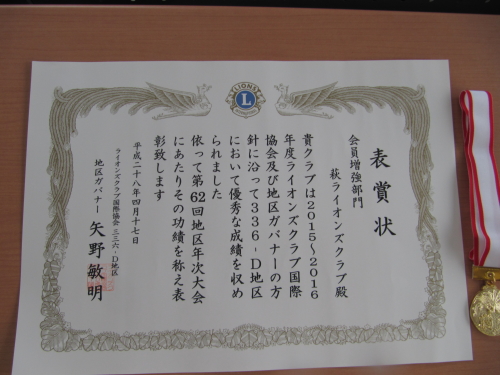 LIONS
L
表賞状
会員増強部門
萩ライオンズクラブ殿
貴クラブは2015~2016
年度ライオンズクラブ国際
協会及び地区ガバナーの方
針に沿って336-D地区
において優秀な成績を収め
られました
依って第62回地区年次大会
にあたりその功績を称え表
彰致します
平成二十八年四月十七日
ライオンズクラブ国際協会 三三六-D地区
地区ガバナー 矢野敏明